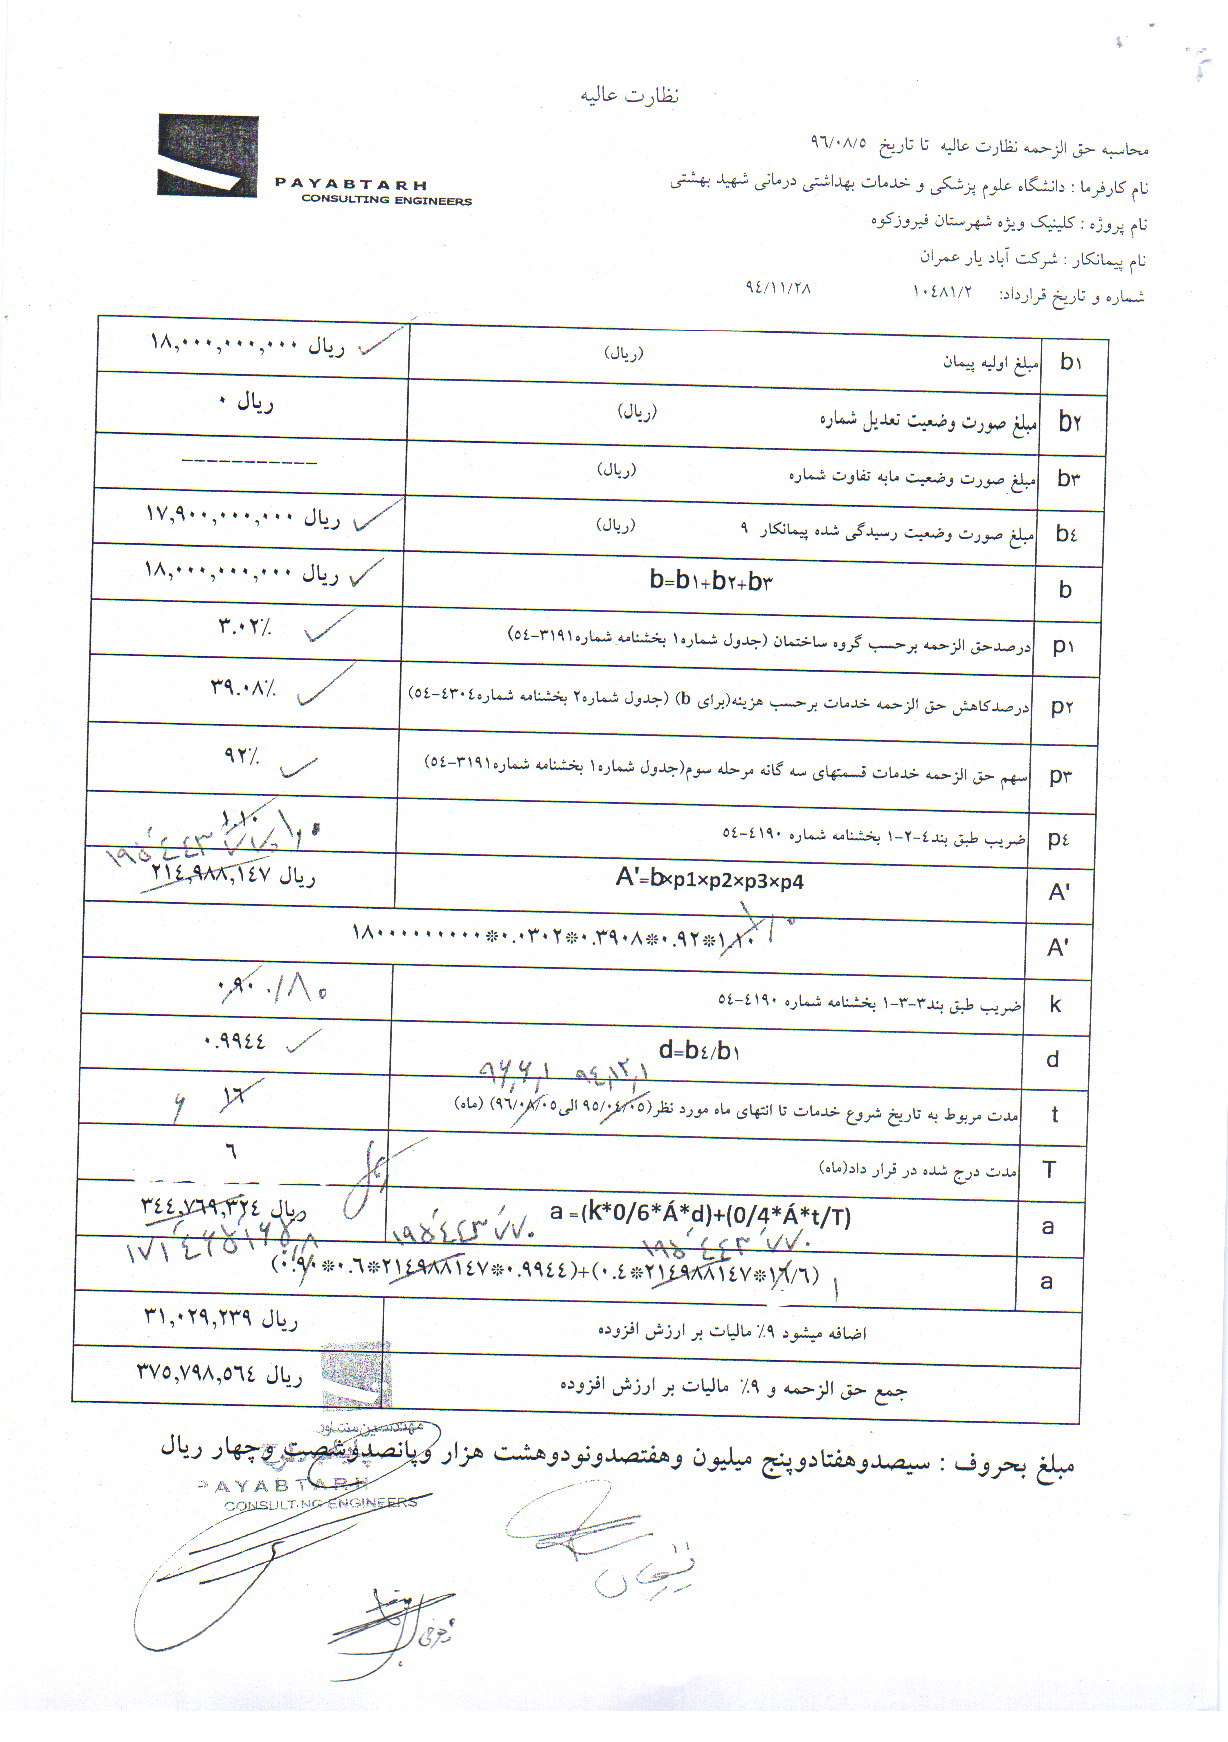 نظارت عالیه
PAYABTARH
CONSULTING ENGINEERS
محاسبه حق الزحمه نظارت عالیه تا تاریخ ۹۶/۰۸/۵
نام کارفرما : دانشگاه علوم پزشکی و خدمات بهداشتی درمانی شهید بهشتی
نام پروژه : کلینیک ویژه شهرستان فیروزکوه
نام پیمانکار : شرکت آباد یار عمران
شماره و تاریخ قرارداد: ۱۰٤۸۱/۲ ۹٤/۱۱/۲۸
b۱ مبلغ اولیه پیمان (ریال) ۱۸,۰۰۰,۰۰۰,۰۰۰ ریال
b۲ مبلغ صورت وضعیت تعدیل شماره (ریال) ۰ ریال
b۳ مبلغ صورت وضعیت مابه تفاوت شماره (ریال) -----------
b٤ مبلغ صورت وضعیت رسیدگی شده پیمانکار ۹ (ریال) ۱۷,۹۰۰,۰۰۰,۰۰۰ ریال
b b=b۱+b۲+b۳ ۱۸,۰۰۰,۰۰۰,۰۰۰ ریال
p۱ درصدحق الزحمه برحسب گروه ساختمان (جدول شماره۱ بخشنامه شماره۳۱۹۱-٥٤) ۳.۰۲٪
p۲ درصدکاهش حق الزحمه خدمات برحسب هزینه(برای b) (جدول شماره۲ بخشنامه شماره٤۳۰٤-٥٤) ۳۹.۰۸٪
p۳ سهم حق الزحمه خدمات قسمتهای سه گانه مرحله سوم(جدول شماره۱ بخشنامه شماره۳۱۹۱-٥٤) ۹۲٪
p٤ ضریب طبق بند٤-۲-۱ بخشنامه شماره ٤۱۹۰-٥٤ ۱.۱۰ ۱٫۰
۱۹۵٬۴۴۳٬۷۷۰
A' A'=b×p1×p2×p3×p4 ۲۱٤,۹۸۸,۱٤۷ ریال
A' ۱۸۰۰۰۰۰۰۰۰۰*۰.۰۳۰۲*۰.۳۹۰۸*۰.۹۲*۱.۱۰ ۱٫۰
k ضریب طبق بند۳-۳-۱ بخشنامه شماره ٤۱۹۰-٥٤ ۰.۹۰ ۰/۸۰
d d=b٤/b۱ ۰.۹۹٤٤
۹۶٫۶٫۱ ۹۴٫۱۲٫۱
t مدت مربوط به تاریخ شروع خدمات تا انتهای ماه مورد نظر(۹٥/۰٤/۰٥ الی۹٦/۰۸/۰٥) (ماه) ۱٦ ۶
T مدت درج شده در قرار داد(ماه) ٦
a a =(k*0/6*Á*d)+(0/4*Á*t/T) ۳٤٤,۷٦۹,۳۲٤ ریال
۱۷۱٬۴۶۵٬۱۶۵ ۰٫۸ ۱۹۵٬۴۴۳٬۷۷۰ ۱۹۵٬۴۴۳٬۷۷۰
a (۰.۹۰*۰.٦*۲۱٤۹۸۸۱٤۷*۰.۹۹٤٤)+(۰.٤*۲۱٤۹۸۸۱٤۷*۱٦/٦) ۱
اضافه میشود ۹٪ مالیات بر ارزش افزوده ۳۱,۰۲۹,۲۳۹ ریال
جمع حق الزحمه و ۹٪ مالیات بر ارزش افزوده ۳۷٥,۷۹۸,٥٦٤ ریال
مهندسین مشاور
مبلغ بحروف : سیصدوهفتادوپنج میلیون وهفتصدونودوهشت هزار وپانصدوشصت وچهار ریال
PAYABTARH
CONSULTING ENGINEERS